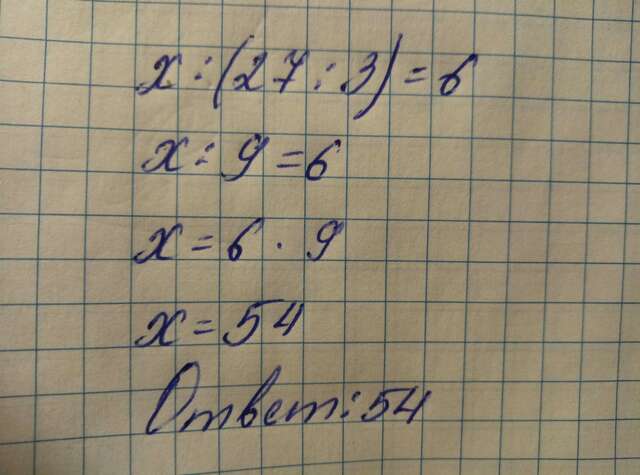 x : (27 : 3) = 6
x : 9 = 6
x = 6 · 9
x = 54
Ответ: 54